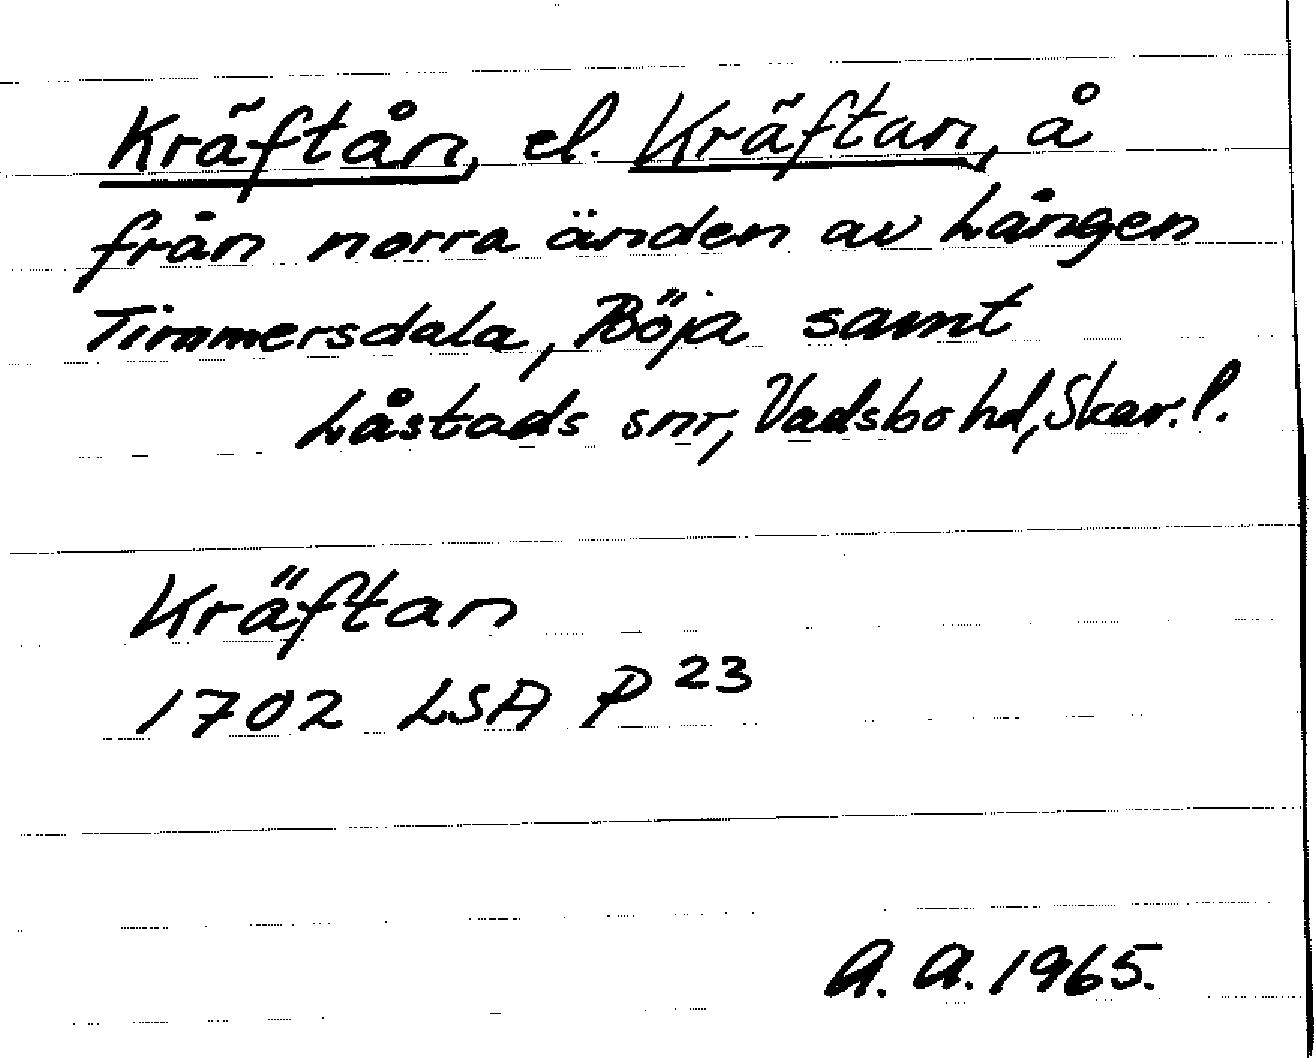 Kräftån, el. Kräftan, å
från norra änden av Lången
Timmersdala, Böja samt
Låstads snr, Vadsbo hd, Skar. l.
Kräftan
1702 LSA P 23
A. A. 1965.